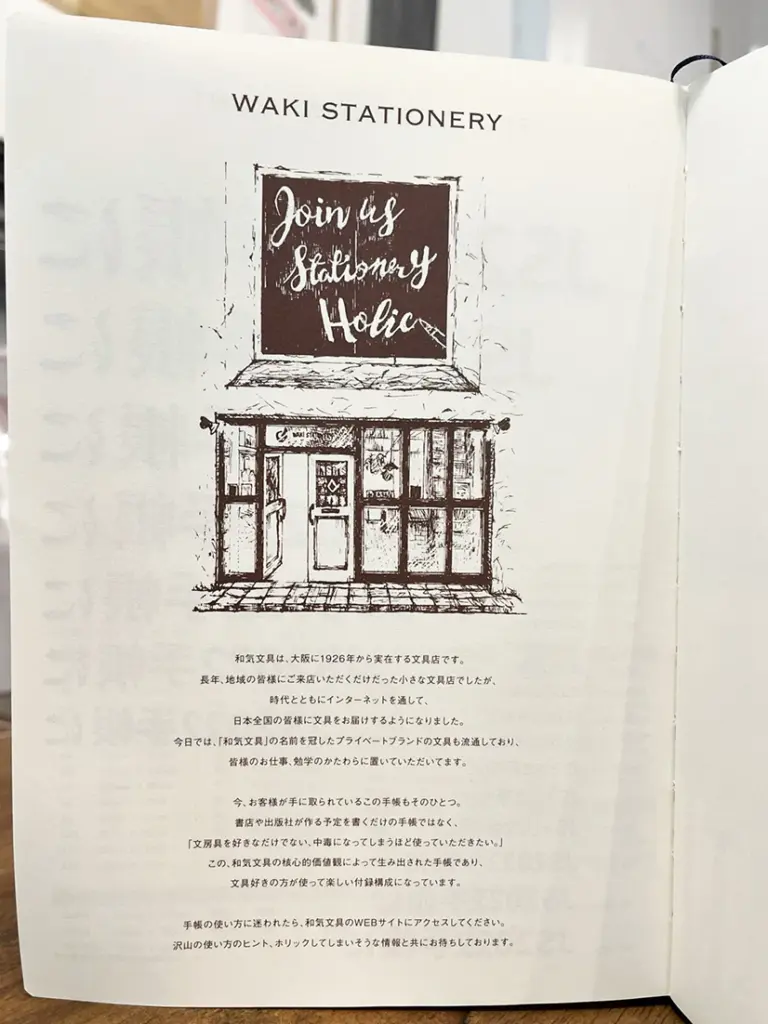 WAKI STATIONERY
Join us
Stationery
Holic
WAKI STATIONERY
和気文具は、大阪に1926年から実在する文具店です。
長年、地域の皆様にご来店いただくだけだった小さな文具店でしたが、
時代とともにインターネットを通して、
日本全国の皆様に文具をお届けするようになりました。
今日では、「和気文具」の名前を冠したプライベートブランドの文具も流通しており、
皆様のお仕事、勉学のかたわらに置いていただいてます。
今、お客様が手に取られているこの手帳もそのひとつ。
書店や出版社が作る予定を書くだけの手帳ではなく、
「文房具を好きなだけでない、中毒になってしまうほど使っていただきたい。」
この、和気文具の核心的価値観によって生み出された手帳であり、
文具好きの方が使って楽しい付録構成になっています。
手帳の使い方に迷われたら、和気文具のWEBサイトにアクセスしてください。
沢山の使い方のヒント、ホリックしてしまいそうな情報と共にお待ちしております。